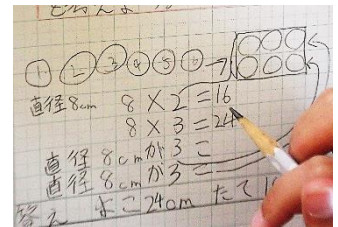 ① ② ③ ④ ⑤ ⑥ →
直径8cm 8×2=16
8×3=24
直径8cmが3こ
直径8cmが3
答え よこ24cm たて1